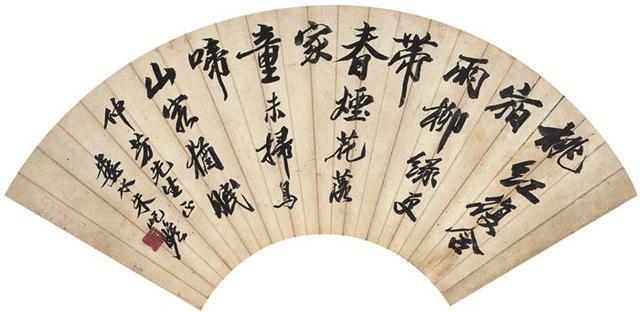 桃紅復含
宿
雨柳綠更
帶
春煙花落
家
童未掃鳥
啼
山客猶眠
仲芳先生正
朱屺瞻